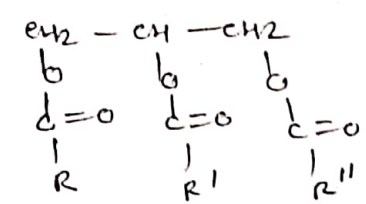 CH2 — CH — CH2
O O O
C=O C=O C=O
R R' R''